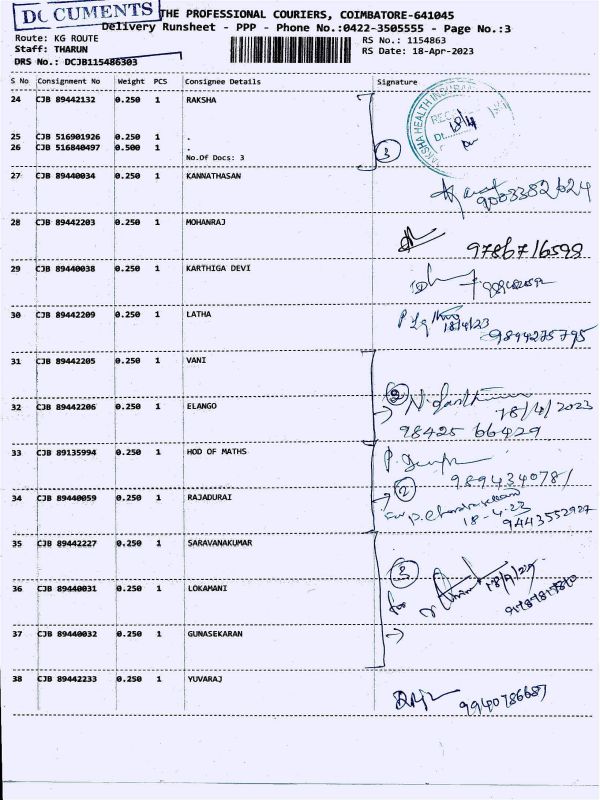 DOCUMENTS
THE PROFESSIONAL COURIERS, COIMBATORE-641045
Delivery Runsheet - PPP - Phone No.:0422-3505555 - Page No.:3
Route: KG ROUTE
RS No.: 1154863
Staff: THARUN
RS Date: 18-Apr-2023
DRS No.: DCJB115486303
S No Consignment No Weight PCS Consignee Details Signature
24 CJB 89442132 0.250 1 RAKSHA
RAKSHA HEALTH INSURANCE
18/4
25 CJB 516901926 0.250 1 .
26 CJB 516840497 0.500 1 .
No.Of Docs: 3
3
27 CJB 89440034 0.250 1 KANNATHASAN
9003382624
28 CJB 89442203 0.250 1 MOHANRAJ
9786716598
29 CJB 89440038 0.250 1 KARTHIGA DEVI
30 CJB 89442209 0.250 1 LATHA
18/4/23
9894275795
31 CJB 89442205 0.250 1 VANI
2
18/4/2023
32 CJB 89442206 0.250 1 ELANGO
98425 66429
33 CJB 89135994 0.250 1 HOD OF MATHS
9894340781
2
34 CJB 89440059 0.250 1 RAJADURAI
18-4-23
9443552927
35 CJB 89442227 0.250 1 SARAVANAKUMAR
3
for
36 CJB 89440031 0.250 1 LOKAMANI
37 CJB 89440032 0.250 1 GUNASEKARAN
38 CJB 89442233 0.250 1 YUVARAJ
9940786687